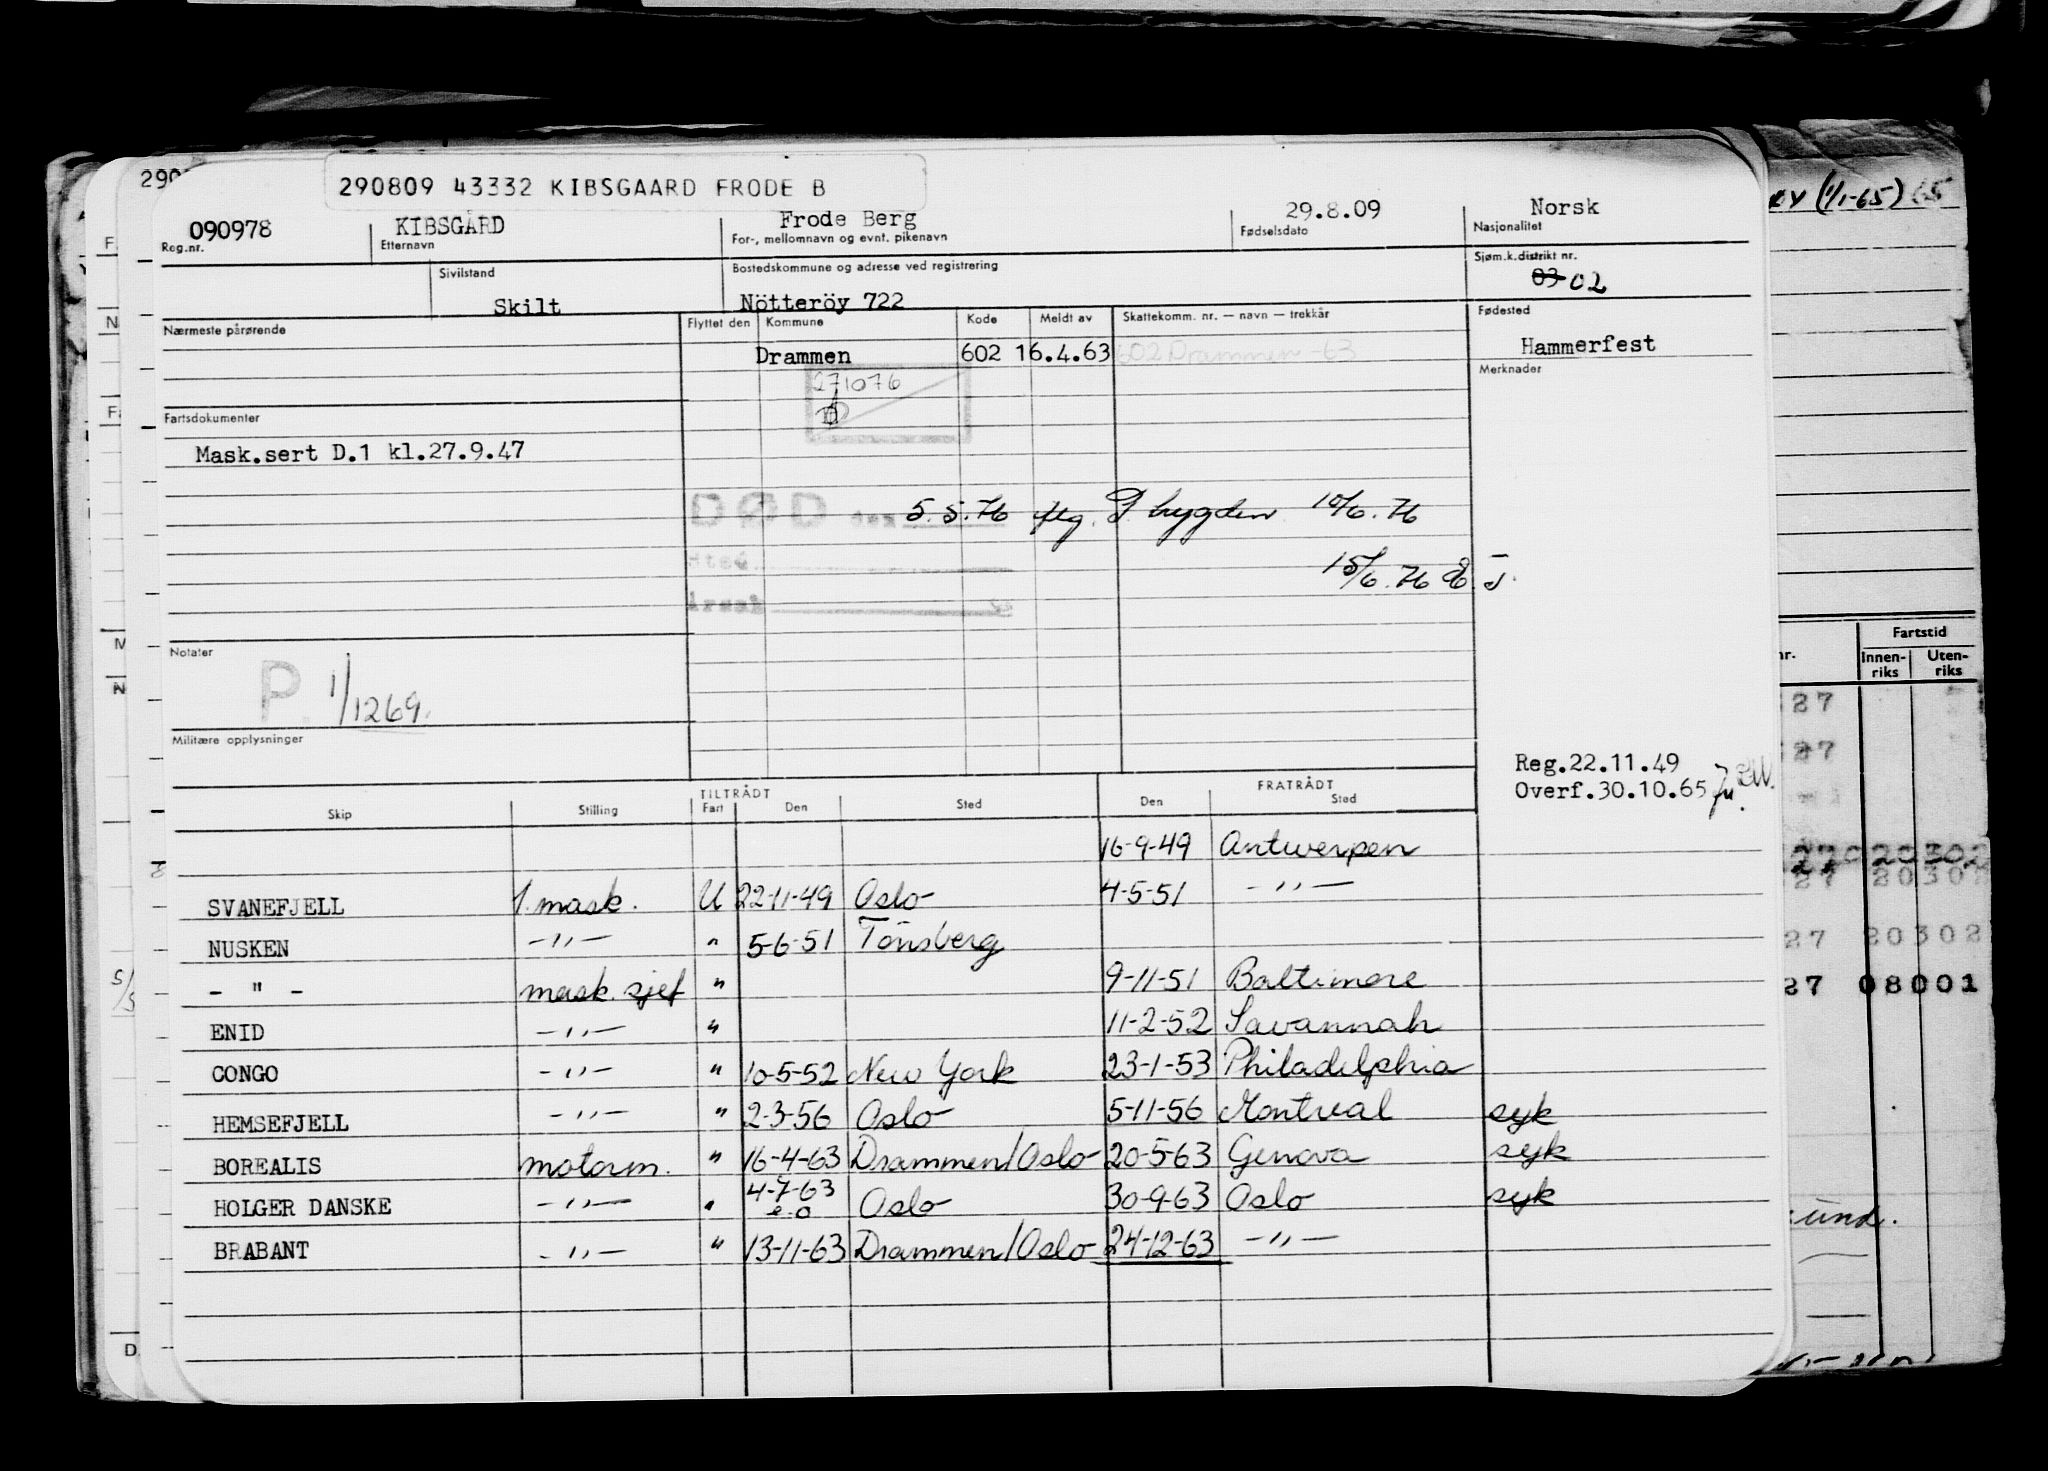 290809 43332 KIBSGAARD FRODE B
090978 KIBSGÅRD Frode Berg 29.8.09 Norsk
Reg.nr. Etternavn For-, mellomnavn og evnt. pikenavn Fødselsdato Nasjonalitet
Sivilstand Bostedskommune og adresse ved registrering Sjøm.k.distrikt nr.
Skilt Nötteröy 722 03 02
Nærmeste pårørende Flyttet den Kommune Kode Meldt av Skattekomm. nr. — navn — trekkår Fødested
Drammen 602 16.4.63 602 Drammen -63 Hammerfest
Merknader
271076
Fartsdokumenter
Mask.sert D.1 kl.27.9.47
DØD den 5.5.76 flg. P. trygden 10/6.76
Sted
15/6.76
Årsak
Notater
P. 1/1269.
Militære opplysninger
Reg.22.11.49
Overf.30.10.65
TILTRÅDT FRATRÅDT
Skip Stilling Fart Den Sted Den Sted
16-9-49 Antwerpen
SVANEFJELL 1. mask. U 22-11-49 Oslo 4-5-51 -"-
NUSKEN -"- " 5-6-51 Tönsberg
- " - mask. sjef " 9-11-51 Baltimore
ENID -"- " 11-2-52 Savannah
CONGO -"- " 10-5-52 New York 23-1-53 Philadelphia
HEMSEFJELL -"- " 2-3-56 Oslo 5-11-56 Montreal syk
BOREALIS motorm. " 16-4-63 Drammen/Oslo 20-5-63 Genova syk
HOLGER DANSKE -"- " 4-7-63 e.o Oslo 30-9-63 Oslo syk
BRABANT -"- " 13-11-63 Drammen/Oslo 24-12-63 -"-
(1/1-65) 65
nr. Fartstid
Innen-riks Uten-riks
27
27
27 20302
27 20302
27 20302
27 08001
sund.